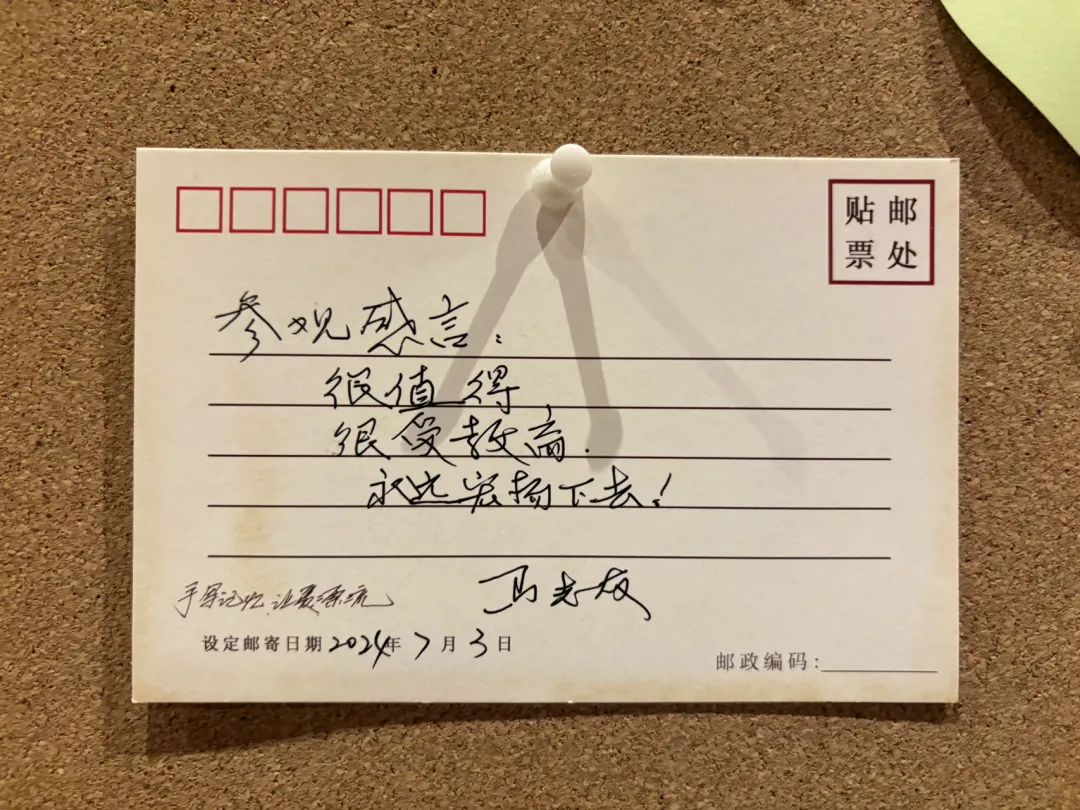 贴邮
票处
参观感言:
很值得,
很受教育.
永远宏扬下去!
手写记忆,让爱漂流
马志友
设定邮寄日期2024年7月3日
邮政编码: